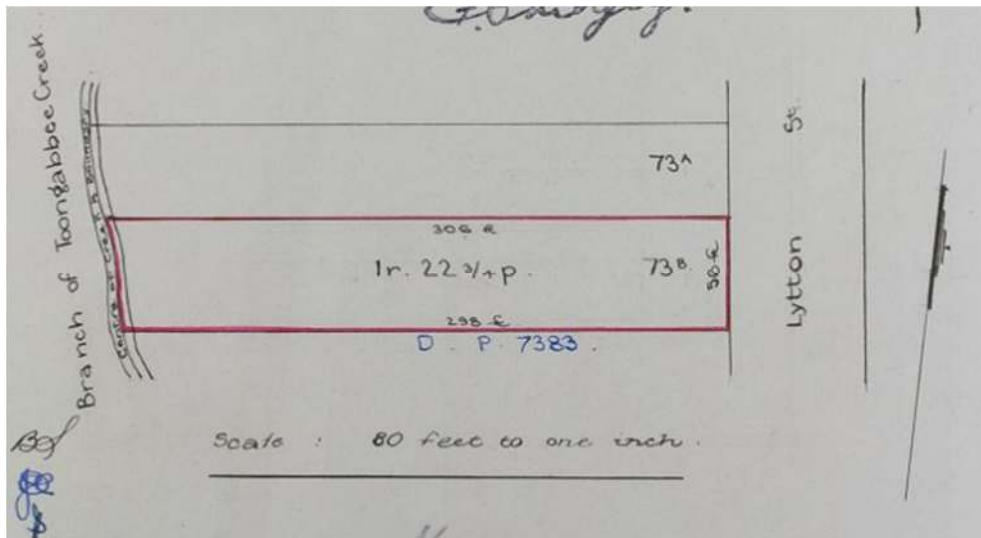 Branch of Toongabbee Creek
Centre of Creek is Boundary
St.
73A
306 ft
1r. 22 3/4 p.
73B
58 ft
Lytton
298 ft
D. P. 7383.
Scale : 80 feet to one inch.